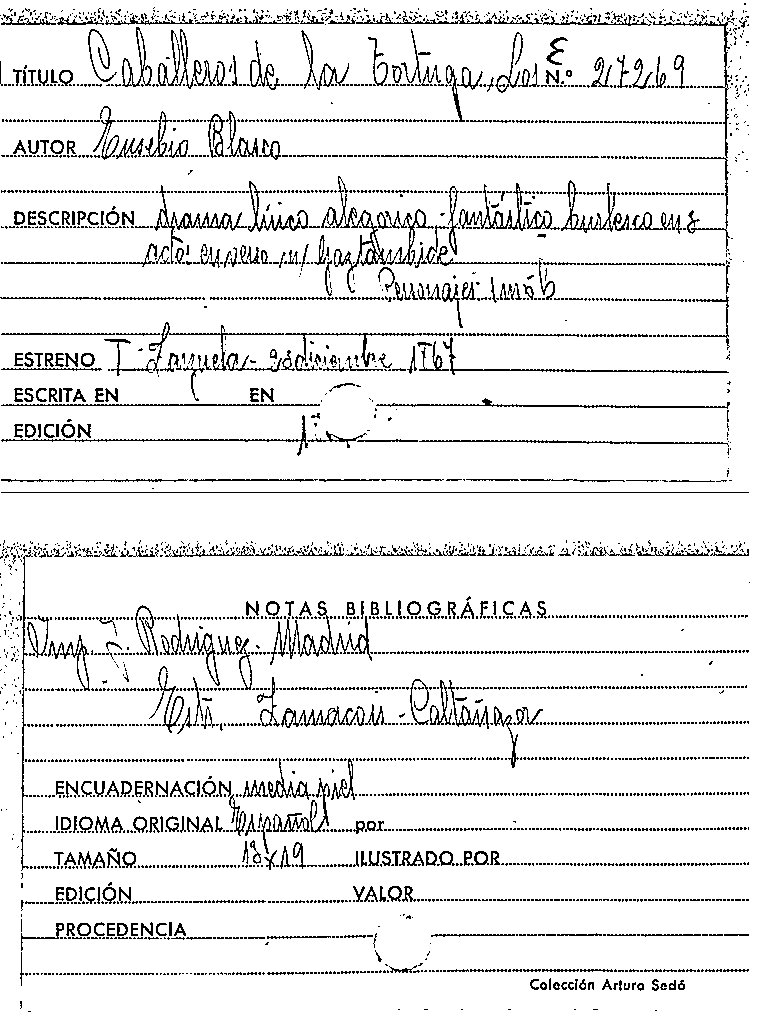 TÍTULO Caballeros de la Tortuga, Los E N.º 27269
AUTOR Eusebio Blasco
DESCRIPCIÓN drama lírico alegórico, fantástico burlesco en 3
actos en verso m/ Gaztambide
Personajes 1 m 5 h
ESTRENO T. Zarzuela - diciembre 1867
ESCRITA EN EN
EDICIÓN 1ª
NOTAS BIBLIOGRÁFICAS
Imp. J. Rodriguez. Madrid
Ests. Zamacois - Caltañazor
ENCUADERNACIÓN media piel
IDIOMA ORIGINAL Español por
TAMAÑO 13x19 ILUSTRADO POR
EDICIÓN VALOR
PROCEDENCIA
Colección Arturo Sedó